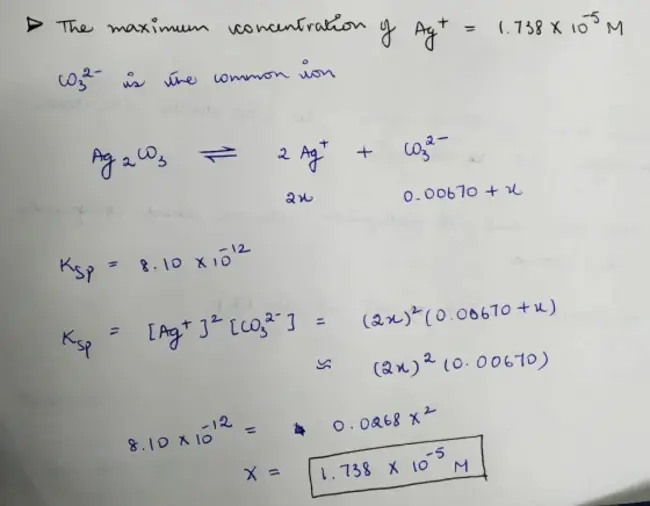 ➤ The maximum concentration of Ag⁺ = 1.738 × 10⁻⁵ M
CO₃²⁻ is the common ion
Ag₂CO₃ ⇌ 2 Ag⁺ + CO₃²⁻
2x 0.00670 + x
Ksp = 8.10 × 10⁻¹²
Ksp = [Ag⁺]² [CO₃²⁻] = (2x)² (0.00670 + x)
≈ (2x)² (0.00670)
8.10 × 10⁻¹² = 0.0268 x²
x = 1.738 × 10⁻⁵ M